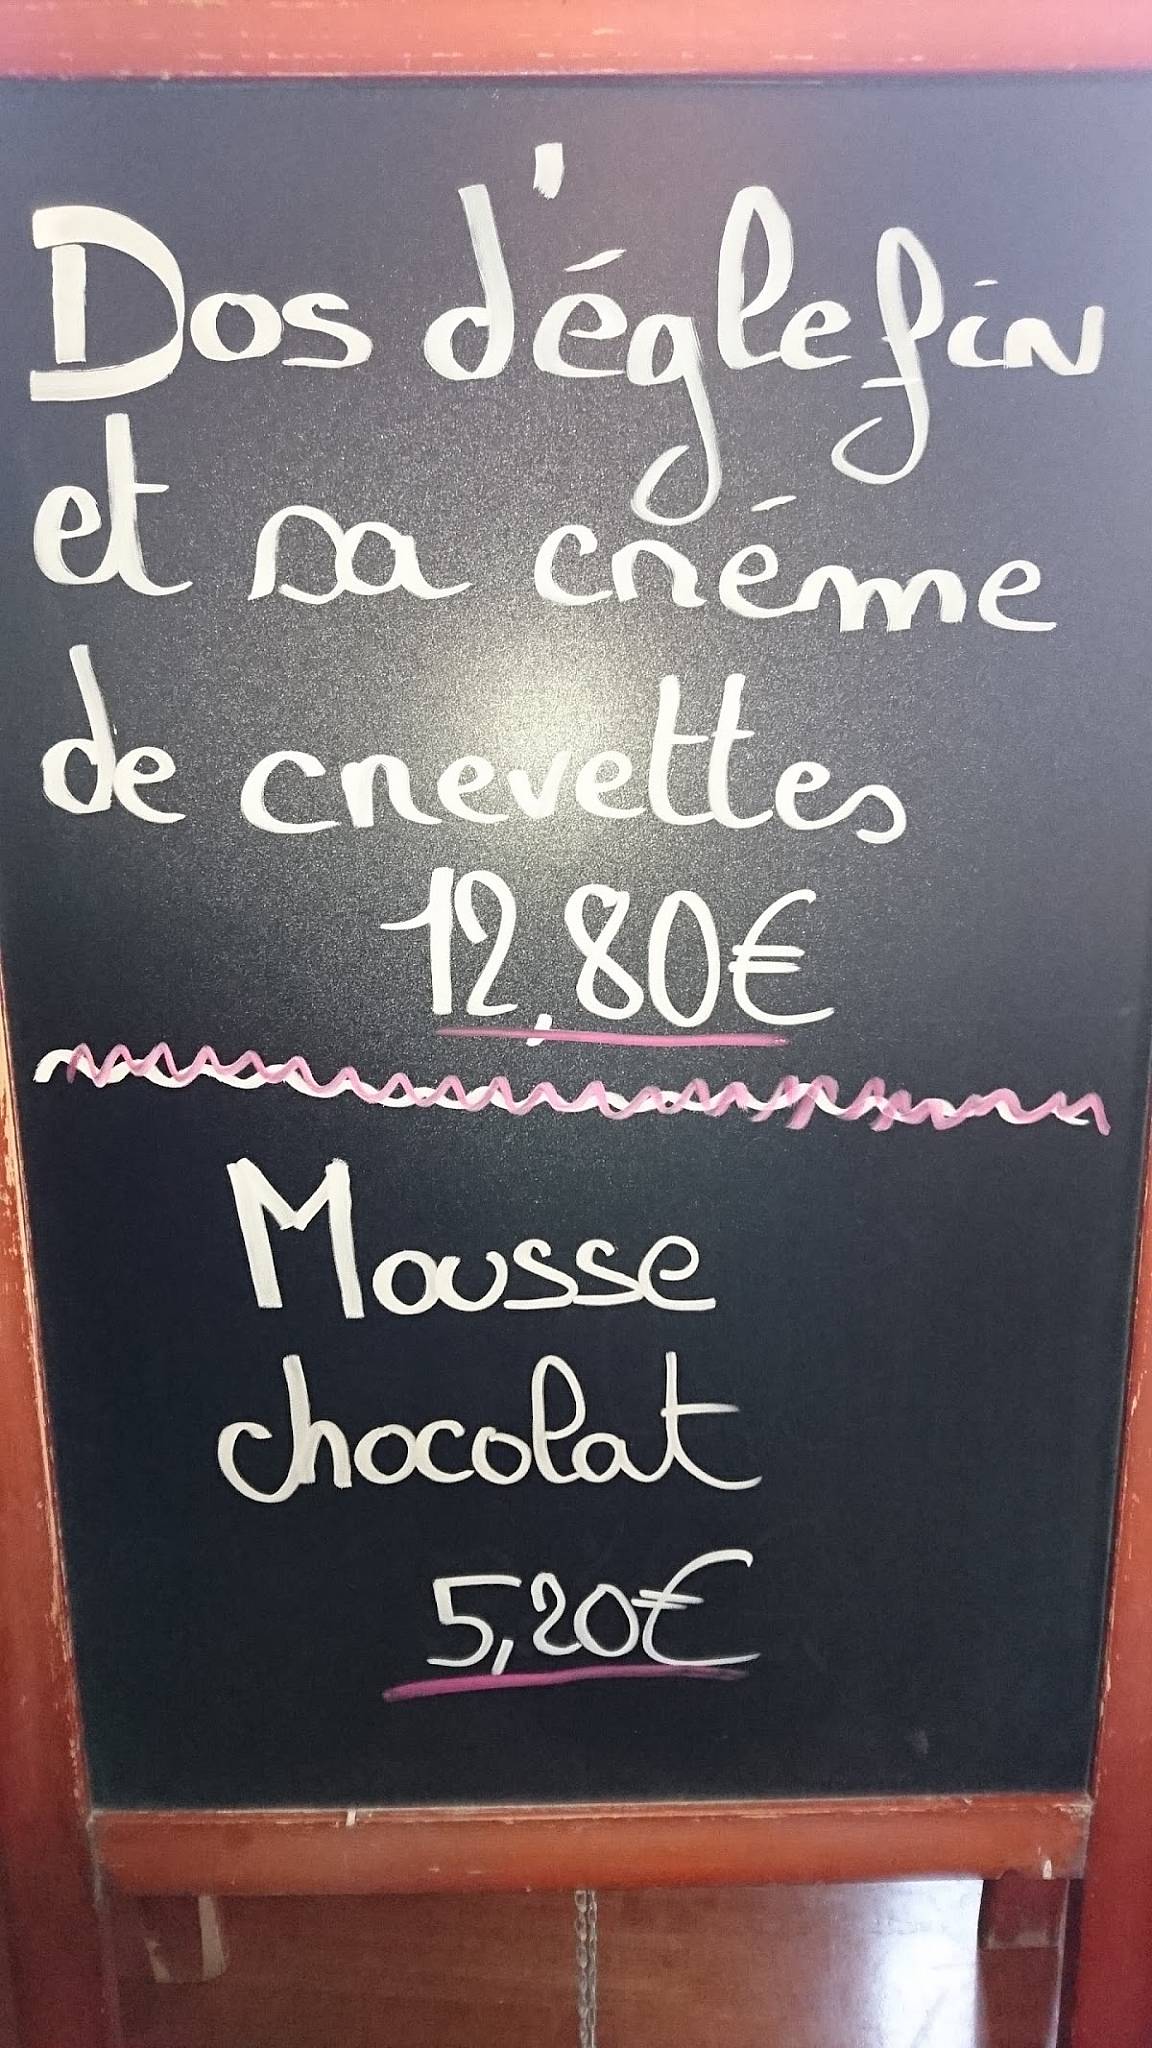 Dos d'églefin
et sa créme
de crevettes
12,80€
Mousse
chocolat
5,20€